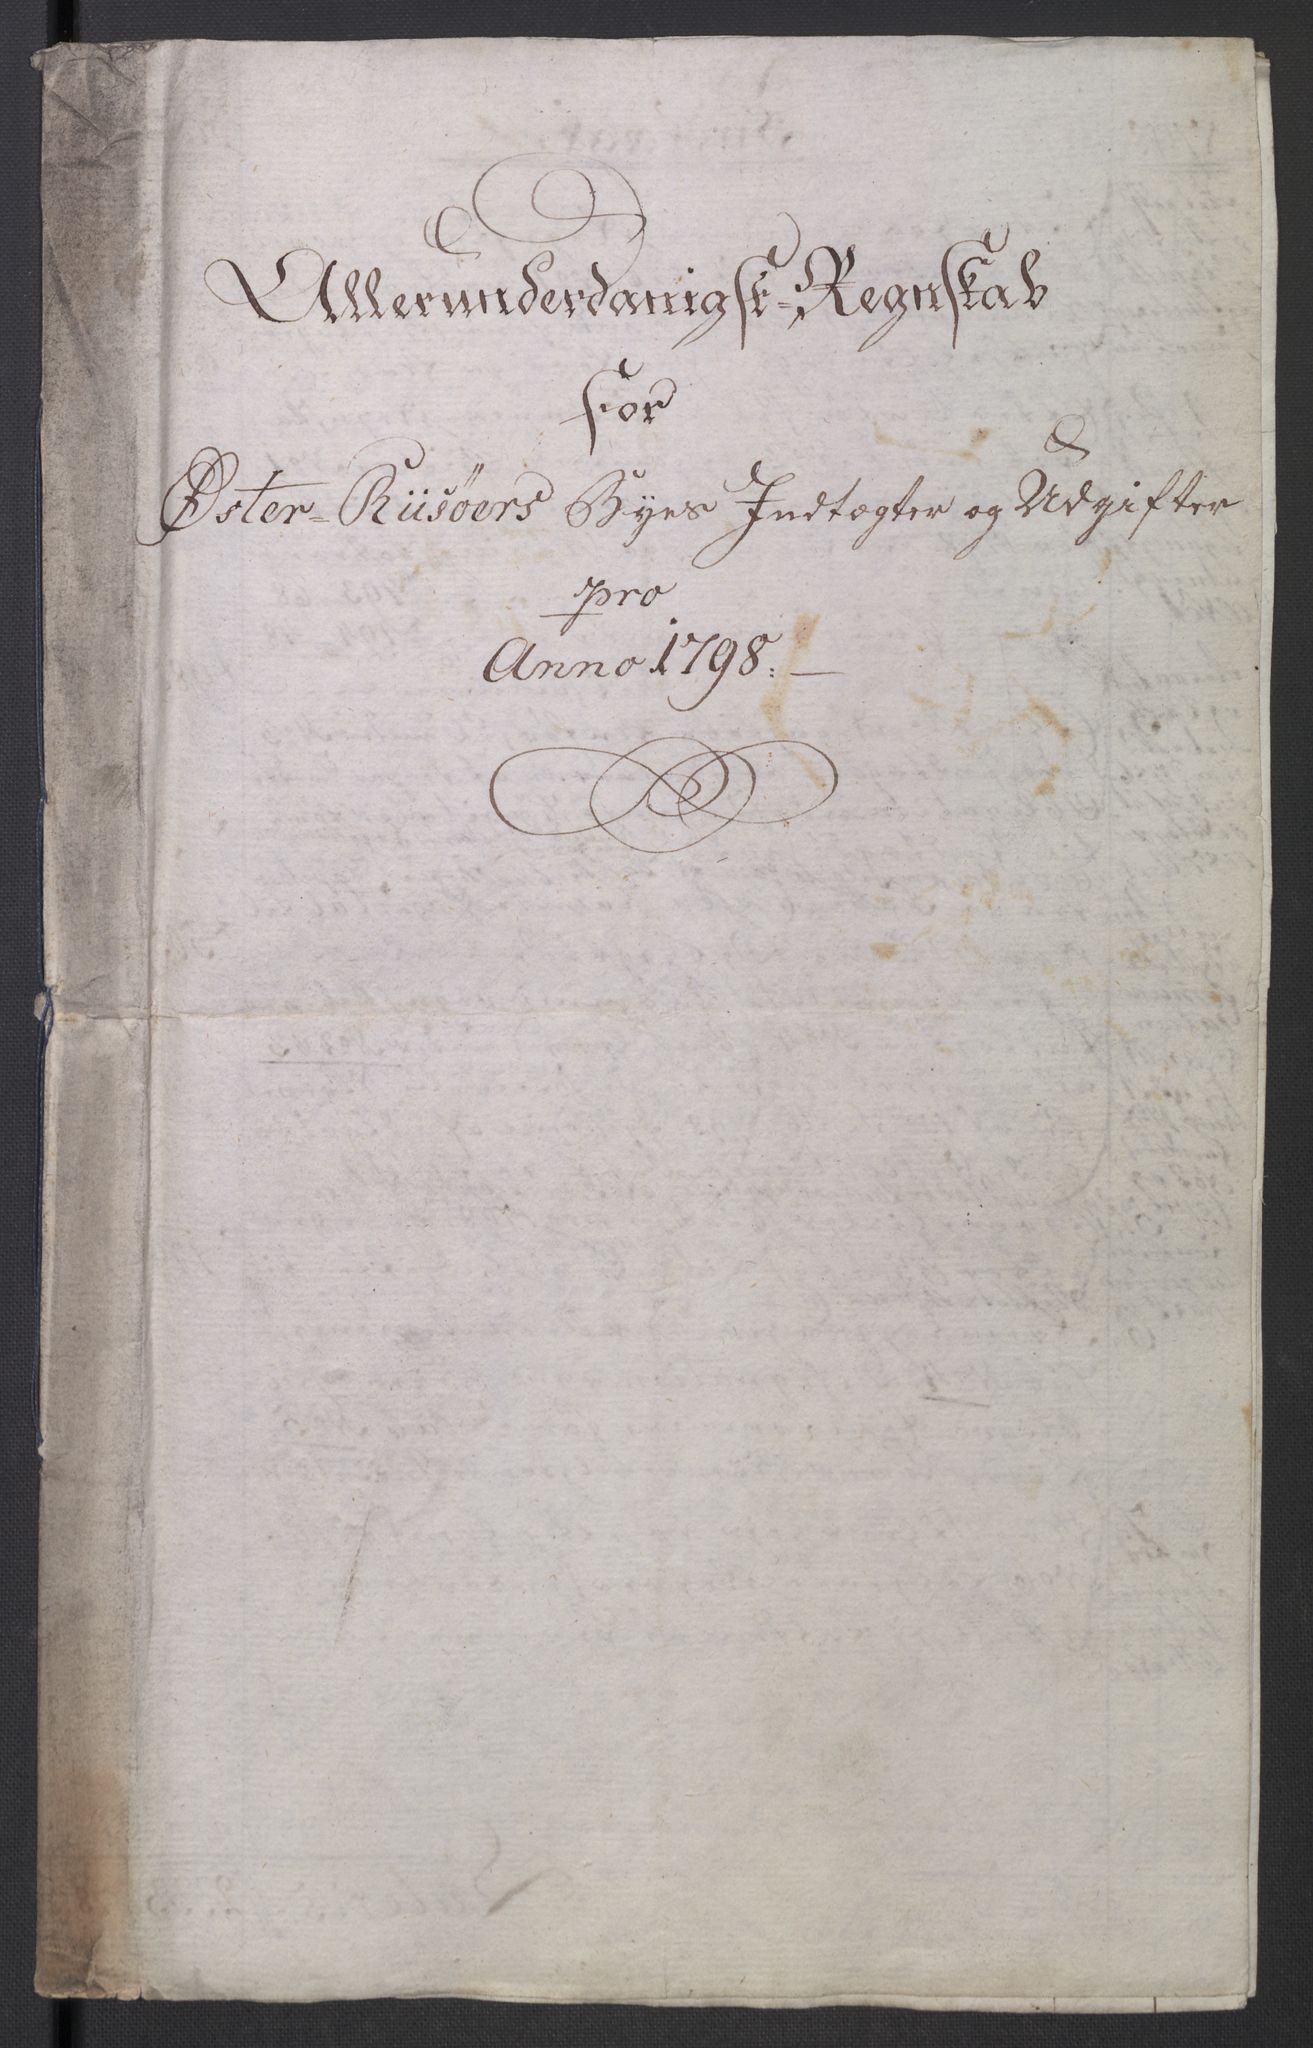 Allerunderdanigst-Regnskab
for
Øster-Riisöers Byes Indtægter og Udgifter
pro
Anno 1798.